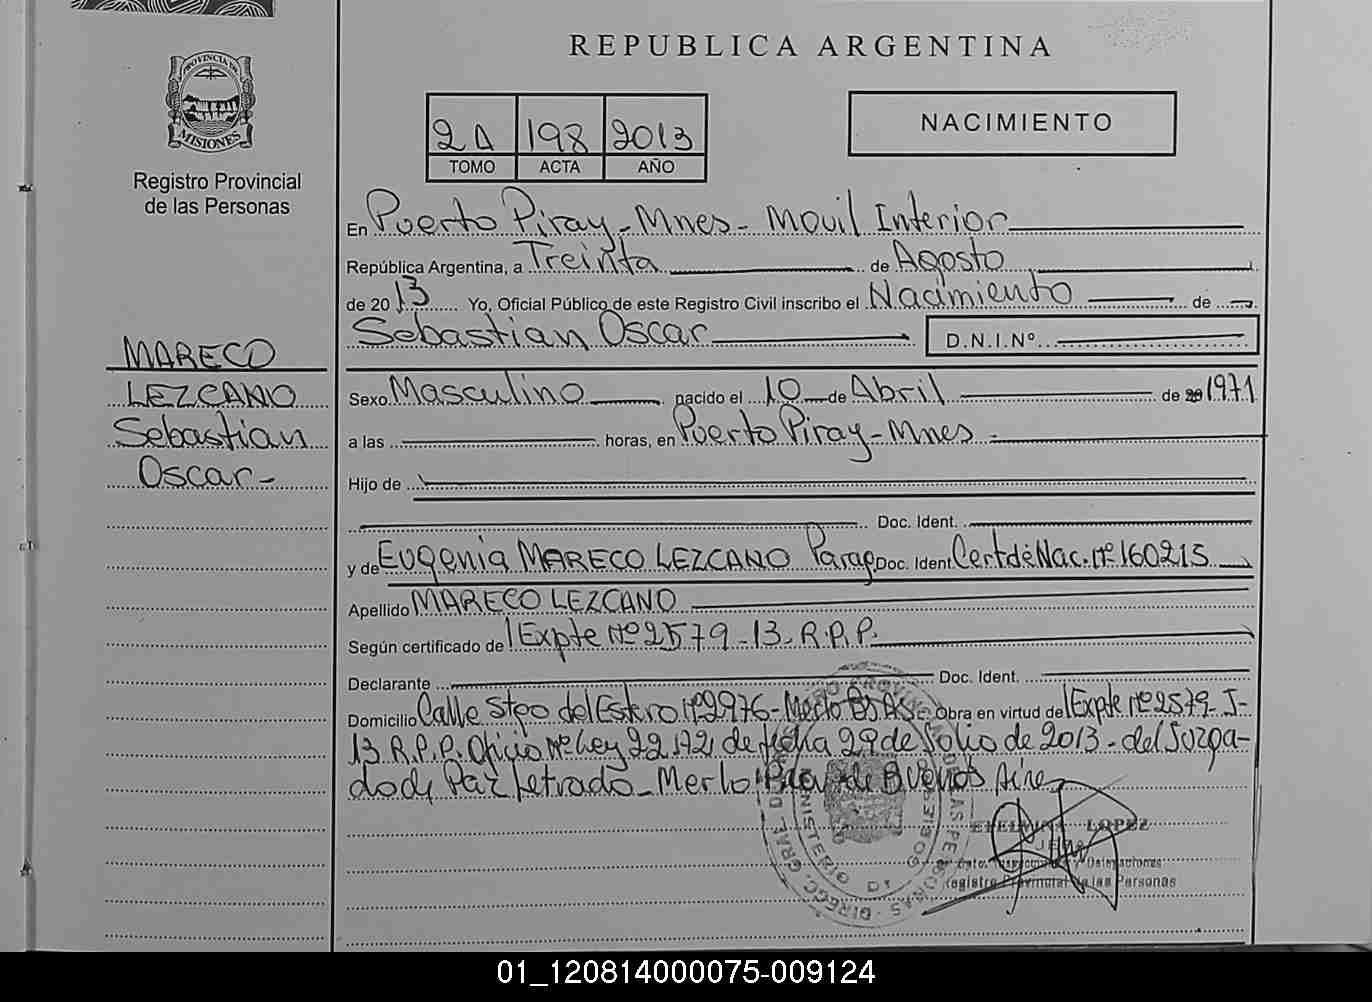 REPUBLICA ARGENTINA
PROVINCIA DE
MISIONES
Registro Provincial
de las Personas
2A 198 2013
TOMO ACTA AÑO
NACIMIENTO
En Puerto Piray - Mnes - Movil Interior
República Argentina, a Treinta de Agosto
de 2013 Yo, Oficial Público de este Registro Civil inscribo el Nacimiento de
Sebastian Oscar D.N.I.Nº
MARECO
LEZCANO
Sebastian
Oscar -
Sexo Masculino nacido el 10 de Abril de 20 1971
a las horas, en Puerto Piray - Mnes
Hijo de
Doc. Ident.
y de Eugenia MARECO LEZCANO Parag Doc. Ident Cert de Nac. Nº 160213
Apellido MARECO LEZCANO
Según certificado de Expte Nº 2579 - 13 - R.P.P.
Declarante Doc. Ident.
Domicilio Calle Stgo del Estero Nº 2976 - Merlo Bs As - Obra en virtud de Expte Nº 2579 - J -
13 R.P.P. Oficio Nº Ley 22.172 de fecha 29 de Julio de 2013 - del Juzga-
do de Paz Letrado - Merlo Prov. de Buenos Aires
LOPEZ
JEFA
Dpto. Inspecciones y Delegaciones
Registro Provincial de las Personas
01_120814000075-009124